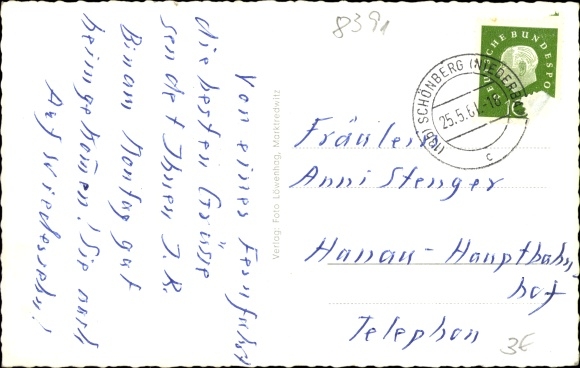 8391
DEUTSCHE BUNDESPOST
10
SCHÖNBERG (NIEDERB
25.5.61.-18
c
Von einer Fernfahrt
die besten Grüsse
sendet Ihnen J. R.
Bin am Montag gut
heimgekom̄en! Sie auch
Auf Wiedersehn!
Verlag: Foto Löwenhag, Marktredwitz
Fräulein
Anni Stenger
Hanau-Hauptbahn
hof
Telephon
3€